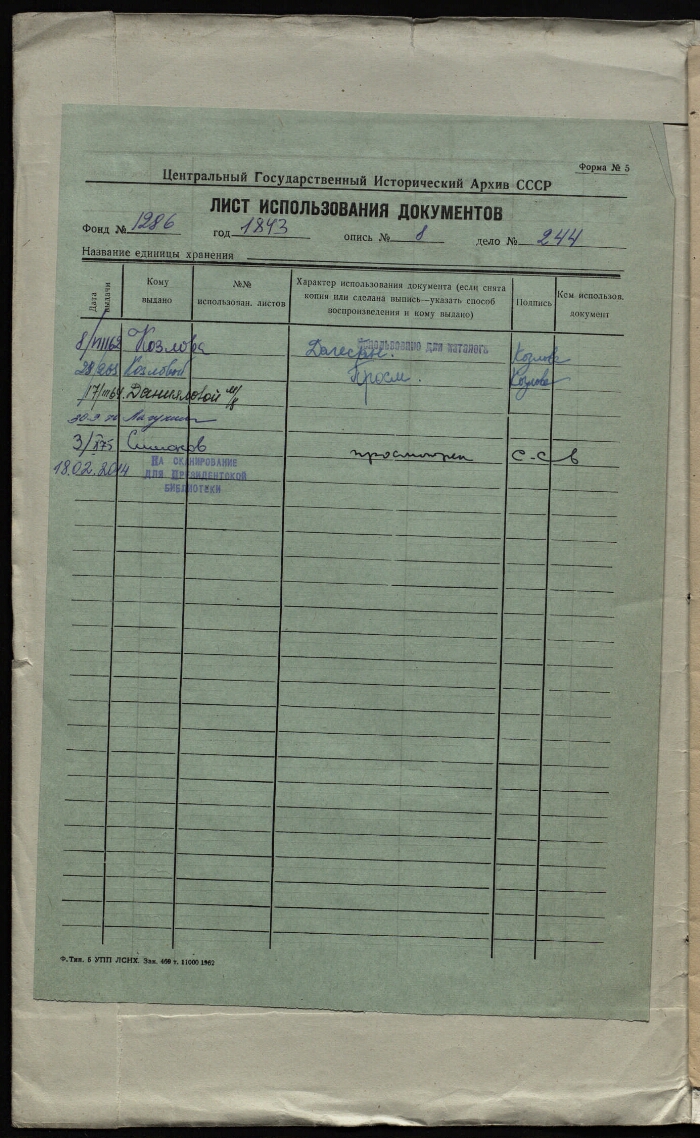 Форма № 5
Центральный Государственный Исторический Архив СССР
ЛИСТ ИСПОЛЬЗОВАНИЯ ДОКУМЕНТОВ
Фонд № 1286 год 1843 опись № 8 дело № 244
Название единицы хранения
Дата выдачи
Кому выдано
№№ использован. листов
Характер использования документа (если снята копия или сделана выпись—указать способ воспроизведения и кому выдано)
Подпись
Кем использов. документ
Козлова Дагестан. Использовано для каталога Козлова
Козловой Просм. Козлова
Данияловой
3/ Симонов просмотрел С-С-в
18.02.2014 НА СКАНИРОВАНИЕ
ДЛЯ ПРЕЗИДЕНТСКОЙ
БИБЛИОТЕКИ
Ф. Тип. 5 УПП ЛСНХ. Зак. 469 т. 11000 1962